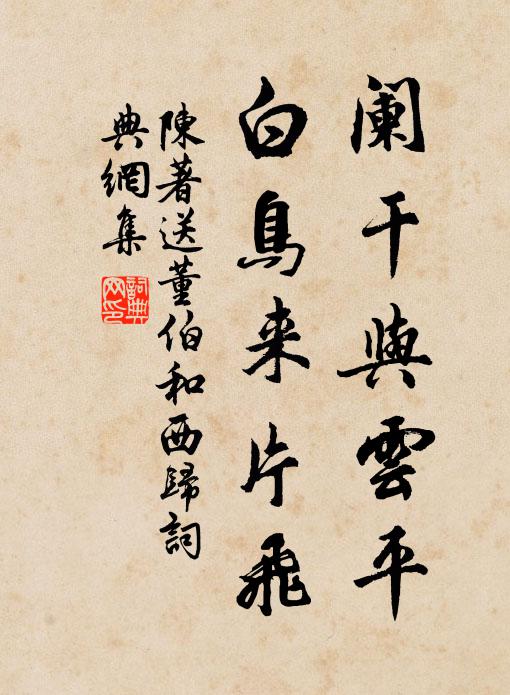 阑干與雲平
白鳥来片飛
陳著送董伯和西歸詞
典網集
詞典网印